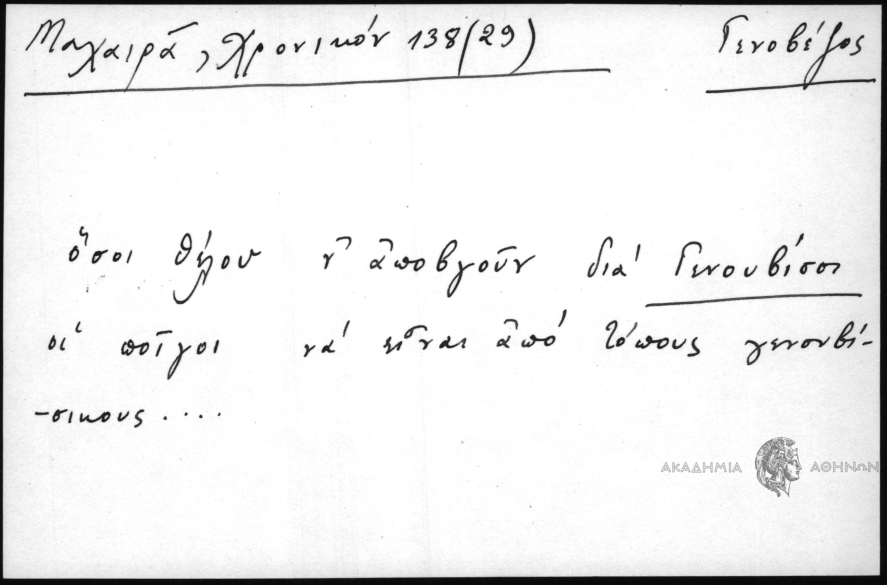 Μαχαιρᾶ, Χρονικόν 138(29) Γενοβέζος
ὅσοι θέλου ν' ἀποβγοῦν διά Γενουβίσοι
οἱ ποῖγοι νά εἶναι ἀπό τόπους γενουβί-
-σικους ....
ΑΚΑΔΗΜΙΑ ΑΘΗΝΩΝ